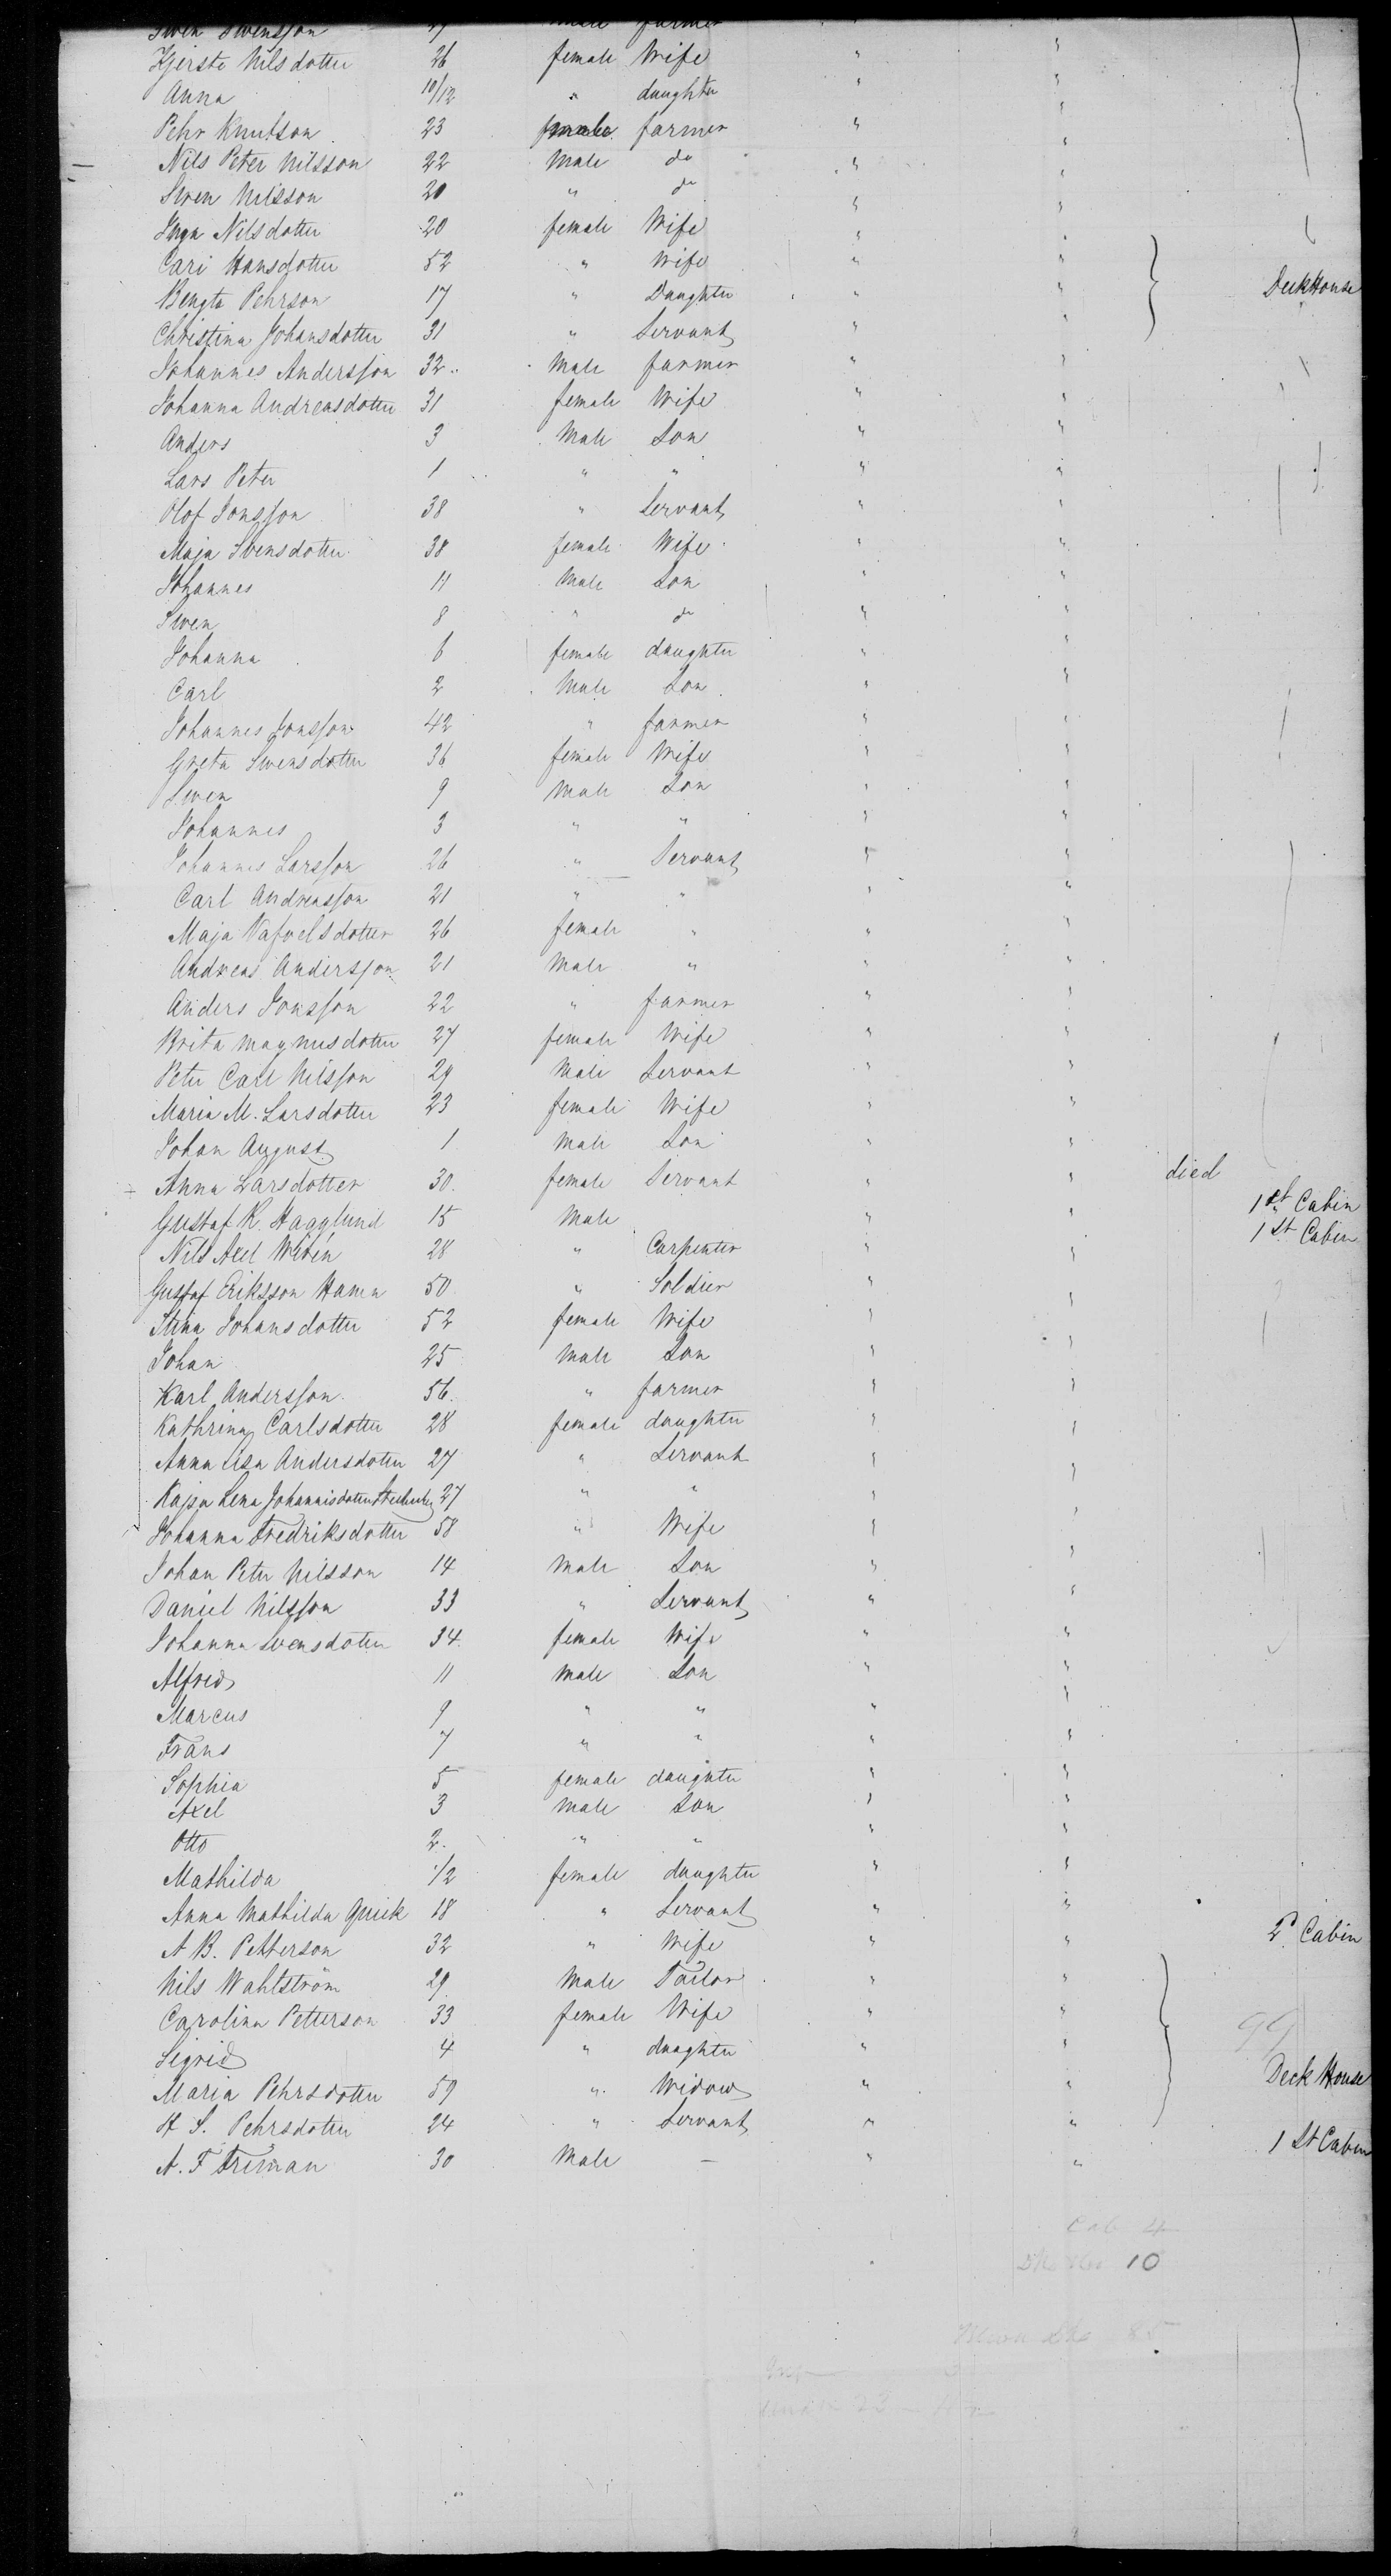 Swen Swensson 27 male farmer
Kjersta Nilsdotter 26 female Wife " "
Anna 10/12 " daughter " "
Pehr Knutson 23 male farmer " "
Nils Peter Nilsson 22 Male do " "
Swen Nilsson 20 " do " "
Inga Nilsdotter 20 female Wife " "
Cari Hansdotter 52 " Wife " "
Bengta Pehrson 17 " Daughter " " Deck House
Christina Johansdotter 31 " Servant " "
Johannes Andersson 32 Male farmer " "
Johanna Andreasdotter 31 female Wife " "
Anders 3 Male Son " "
Lars Peter 1 " " " "
Olof Jonsson 38 " Servant " "
Maja Svensdotter 38 female Wife " "
Johannes 11 Male Son " "
Swen 8 " do " "
Johanna 6 female daughter " "
Carl 2 Male Son " "
Johannes Jonsson 42 " farmer " "
Greta Swensdotter 36 female Wife " "
Swen 9 Male Son " "
Johannes 3 " " " "
Johannes Larsson 26 " Servant " "
Carl Andreasson 21 " " " "
Maja 26 female " " "
Andreas Andersson 21 Male " " "
Anders Jonsson 22 " farmer " "
Brita Magnusdotter 27 female Wife " "
Peter Carl Nilsson 29 Male Servant " "
Maria M. Larsdotter 23 female Wife " "
Johan August 1 Male Son " "
+ Anna Larsdotter 30. female Servant " " died
Gustaf K. Hagglund 15 Male " " 1st Cabin
Nils Axel Widén 28 " Carpenter " " 1st Cabin
Gustaf Eriksson Haman 50 " Soldier " "
Stina Johansdotter 52 female Wife " "
Johan 25 Male Son " "
Karl Andersson 56. " farmer " "
Kathrina Carlsdotter 28 female daughter " "
Anna Lisa Andersdotter 27 " Servant " "
Kajsa Lena Johannisdotter 27 " " " "
Johanna Fredriksdotter 58 " Wife " "
Johan Peter Nilsson 14 Male Son " "
Daniel Nilsson 33 " Servant " "
Johanna Svensdotter 34. female Wife " "
Alfred 11 Male Son " "
Marcus 9 " " " "
Frans 7 " " " "
Sophia 5 female daughter " "
Axel 3 Male Son " "
Otto 2. " " " "
Mathilda 1/2 female daughter " "
Anna Mathilda Quick 18 " Servant " "
A B. Petterson 32 " Wife " " 2d Cabin
Nils Wahlström 29 Male Tailor " "
Carolina Petterson 33 female Wife " "
Sigrid 4 " daughter " " 99
Maria Pehrsdotter 59 " Widow " " Deck House
H S. Pehrsdotter 24 " Servant " "
A. F Freman 30 Male — " " 1 St Cabin
Cab 4
10
85